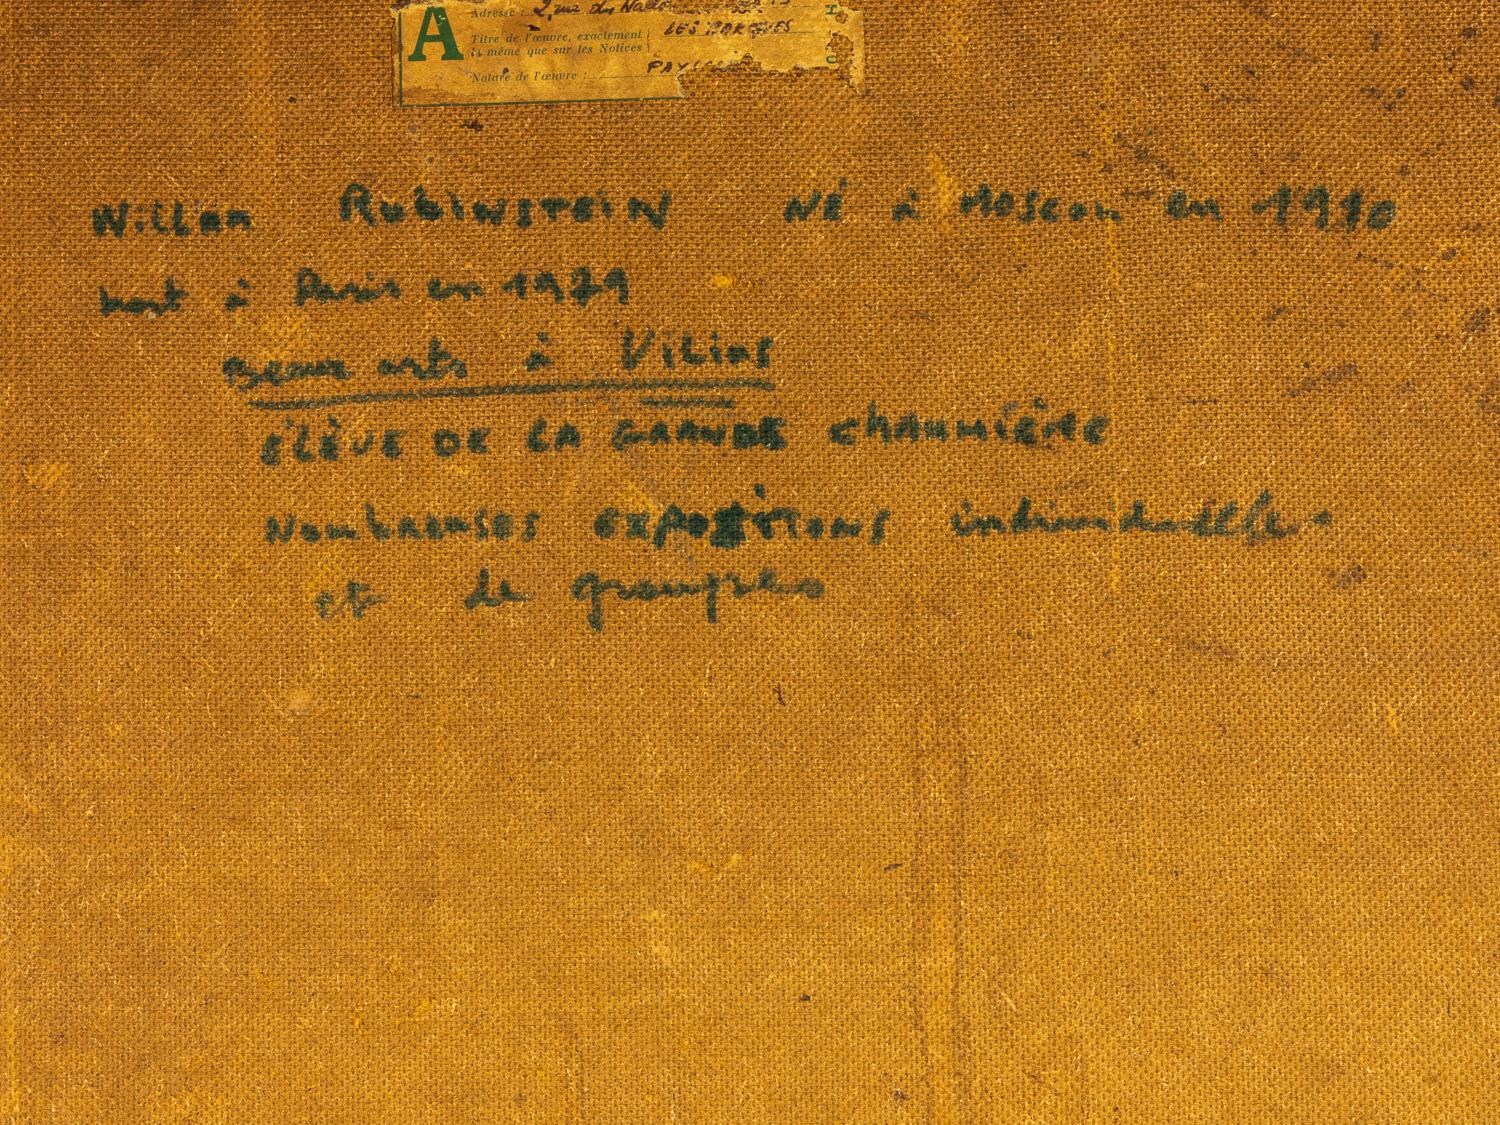 A
Adresse : 2, rue du
Titre de l'œuvre, exactement LES BARQUES
la même que sur les Notices
Nature de l'œuvre :
Willian RUBINSTEIN NÉ à Moscou en 1910
mort à Paris en 1979
Beaux arts à Vilias
ELÈVE DE LA GRANDE CHAUMIÈRE
Nombreuses expositions individuelles
et de groupes